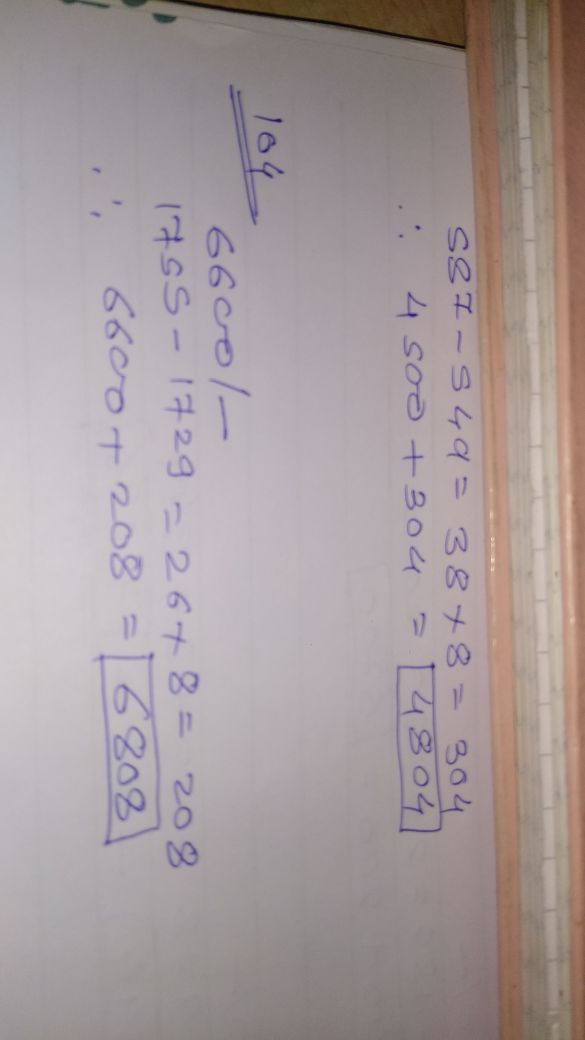 587 - 549 = 38 x 8 = 304
∴ 4500 + 304 = 4804
104
6600/-
1755 - 1729 = 26 x 8 = 208
∴ 6600 + 208 = 6808